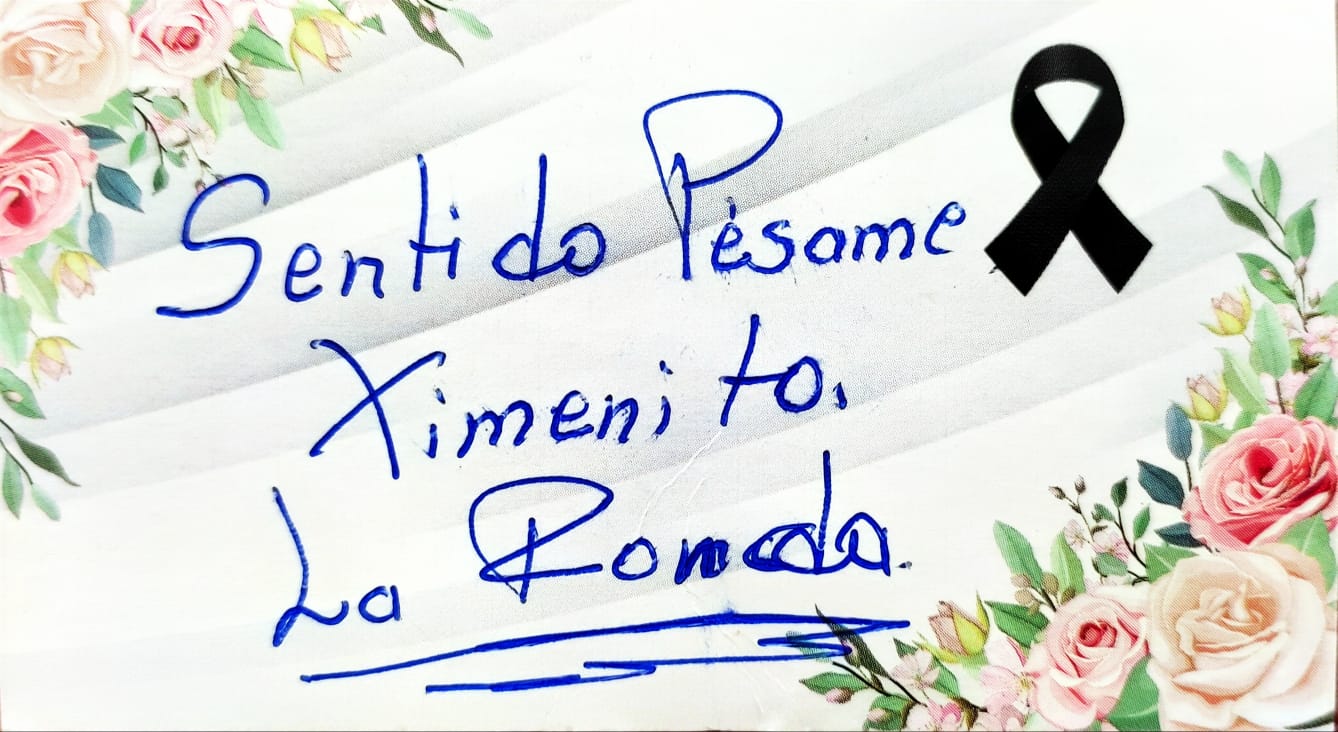 Sentido Pésame
Ximenito.
La